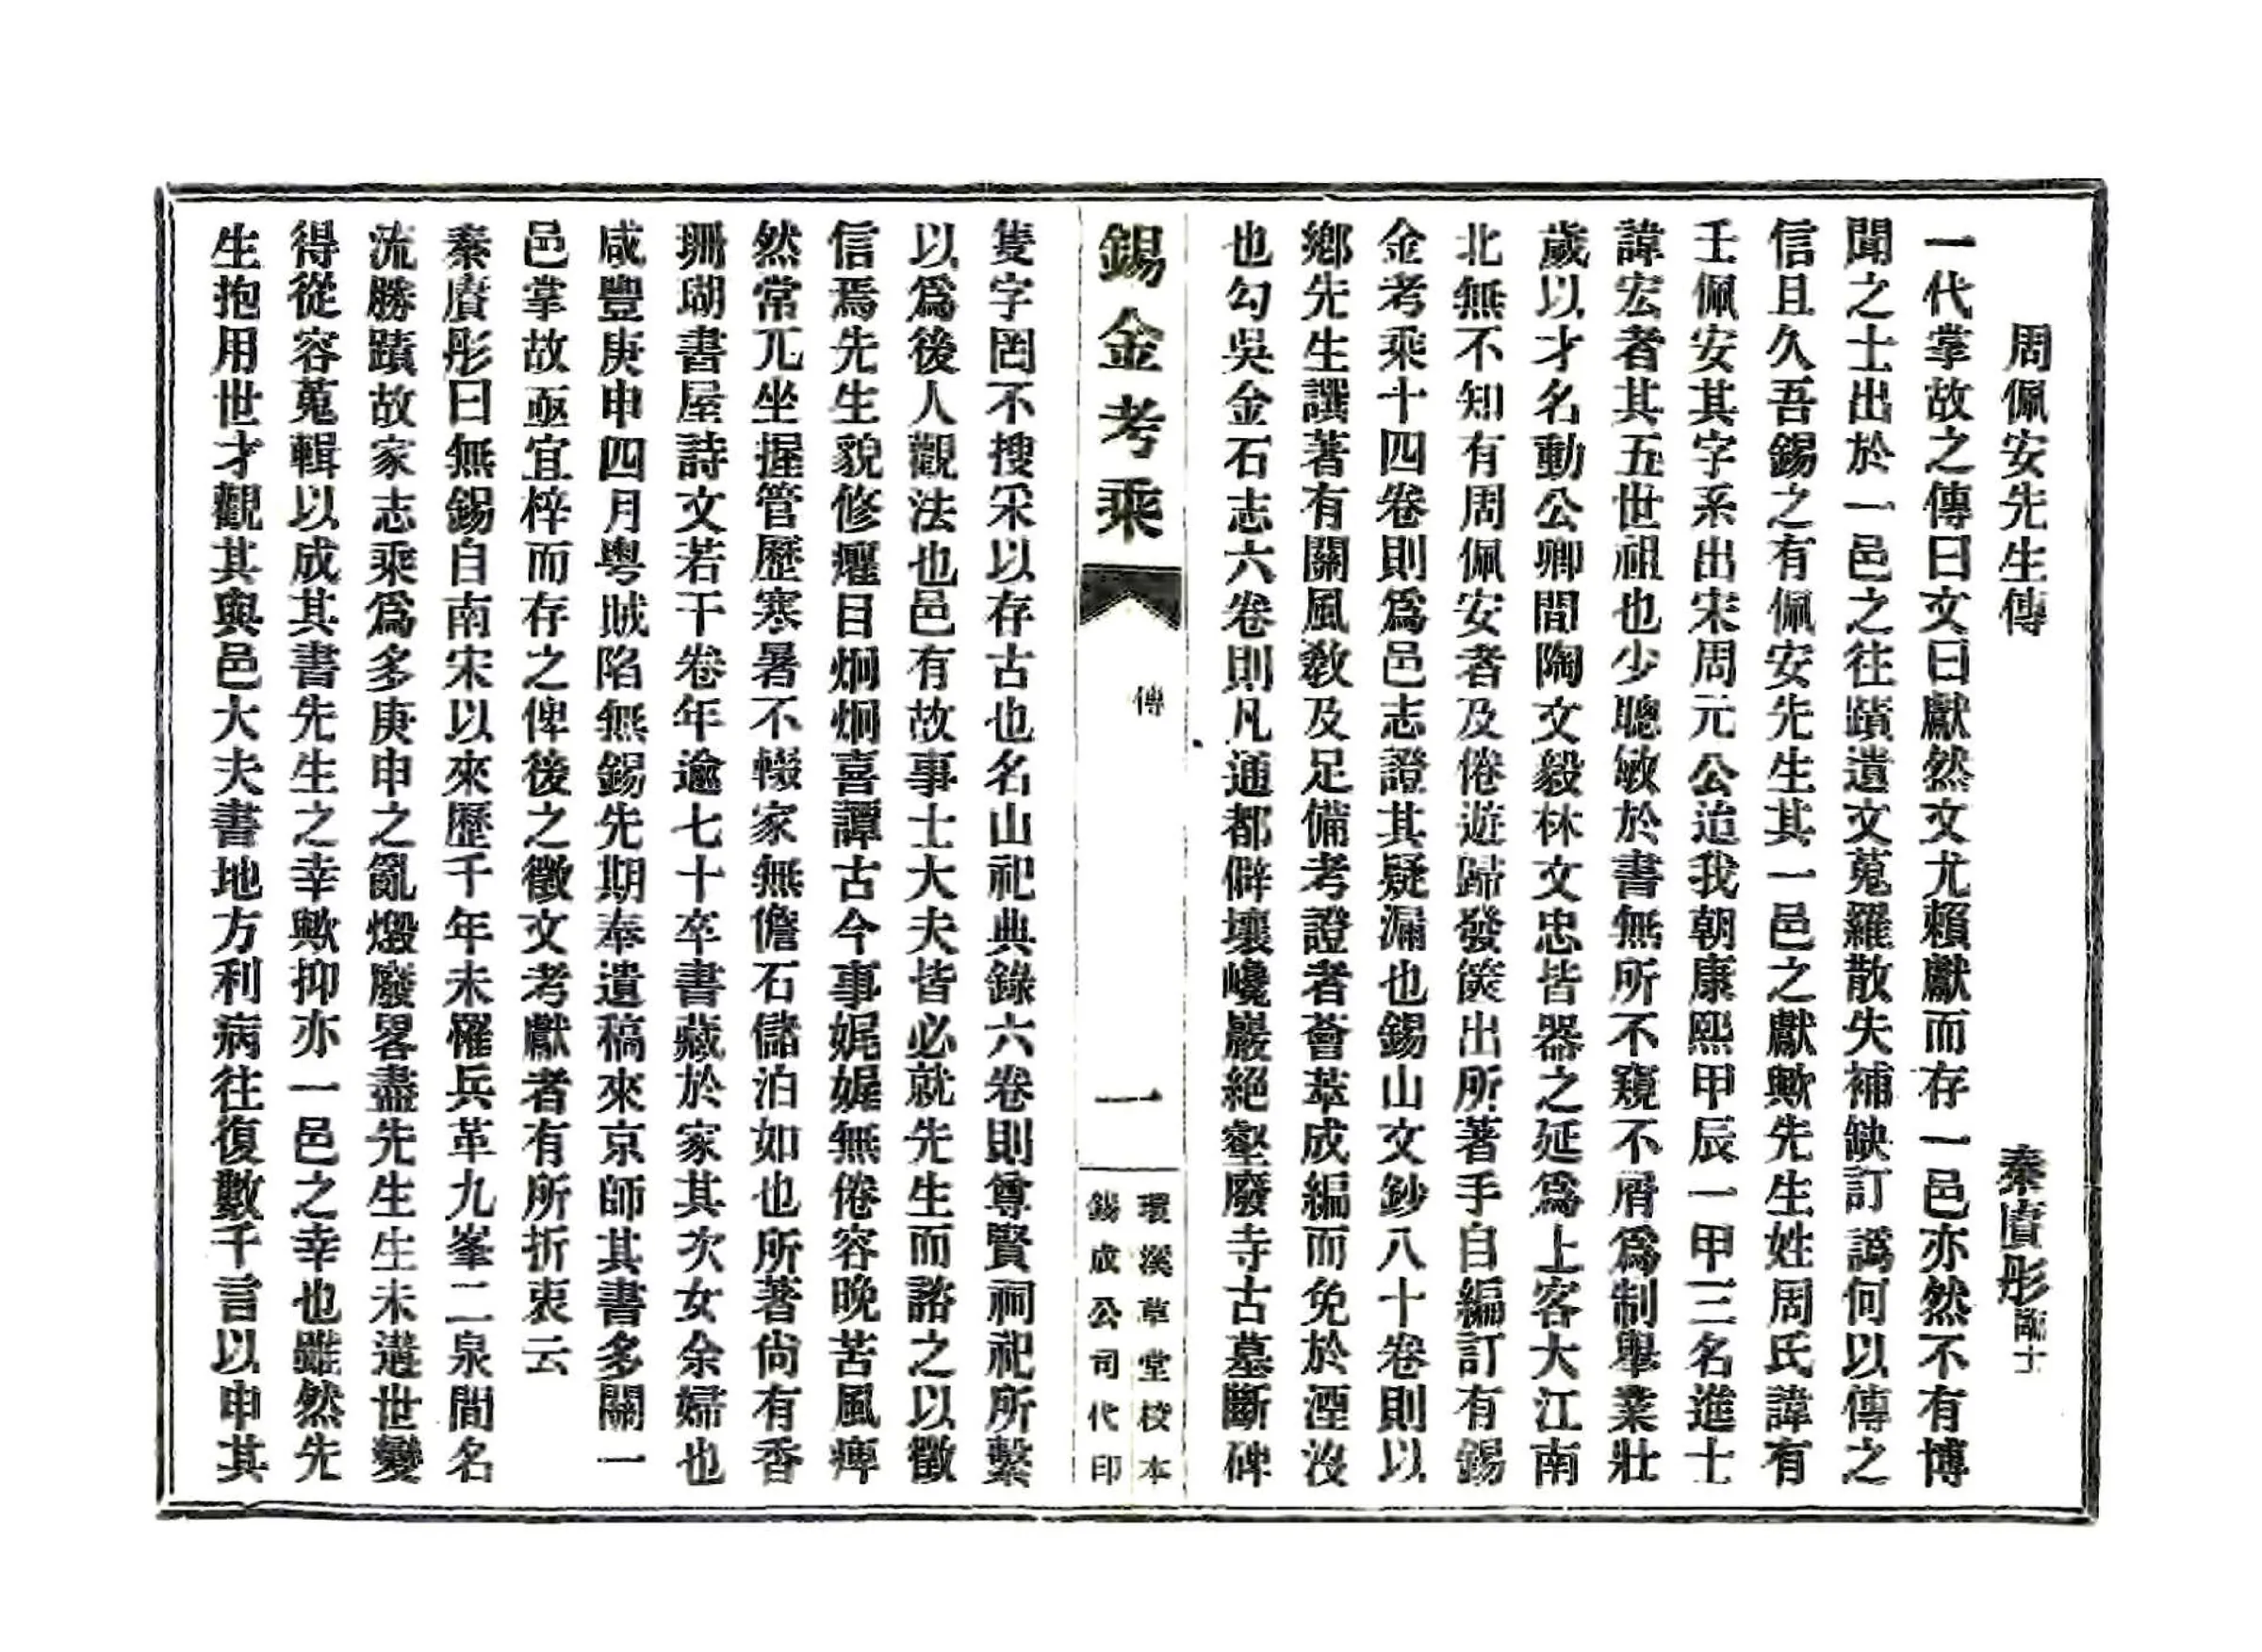 周佩安先生傳　秦賡彤臨士
一代掌故之傳曰文曰獻然文尤賴獻而存一邑亦然不有博
聞之士出於一邑之往蹟遺文蒐羅散失補缺訂譌何以傳之
信且久吾錫之有佩安先生其一邑之獻歟先生姓周氏諱有
壬佩安其字系出宋周元公迨我朝康熙甲辰一甲三名進士
諱宏者其五世祖也少聰敏於書無所不窺不屑爲制舉業壯
歲以才名動公卿間陶文毅林文忠皆器之延爲上客大江南
北無不知有周佩安者及倦遊歸發篋出所著手自編訂有錫
金考乘十四卷則爲邑志證其疑漏也錫山文鈔八十卷則以
鄉先生譔著有關風敎及足備考證者薈萃成編而免於湮沒
也勾吳金石志六卷則凡通都僻壤巉巖絕壑廢寺古墓斷碑
錫金考乘
傳
一
環溪草堂校本
錫成公司代印
隻字罔不搜采以存古也名山祀典錄六卷則尊賢祠祀所繫
以爲後人觀法也邑有故事士大夫皆必就先生而諮之以徵
信焉先生貌修癯目炯炯喜譚古今事娓娓無倦容晚苦風痺
然常兀坐握管歷寒暑不輟家無儋石儲泊如也所著尙有香
珊瑚書屋詩文若干卷年逾七十卒書藏於家其次女余婦也
咸豐庚申四月粵賊陷無錫先期奉遺稿來京師其書多關一
邑掌故亟宜梓而存之俾後之徵文考獻者有所折衷云
秦賡彤曰無錫自南宋以來歷千年未罹兵革九峯二泉間名
流勝蹟故家志乘爲多庚申之亂燬廢畧盡先生生未遘世變
得從容蒐輯以成其書先生之幸歟抑亦一邑之幸也雖然先
生抱用世才觀其與邑大夫書地方利病往復數千言以申其